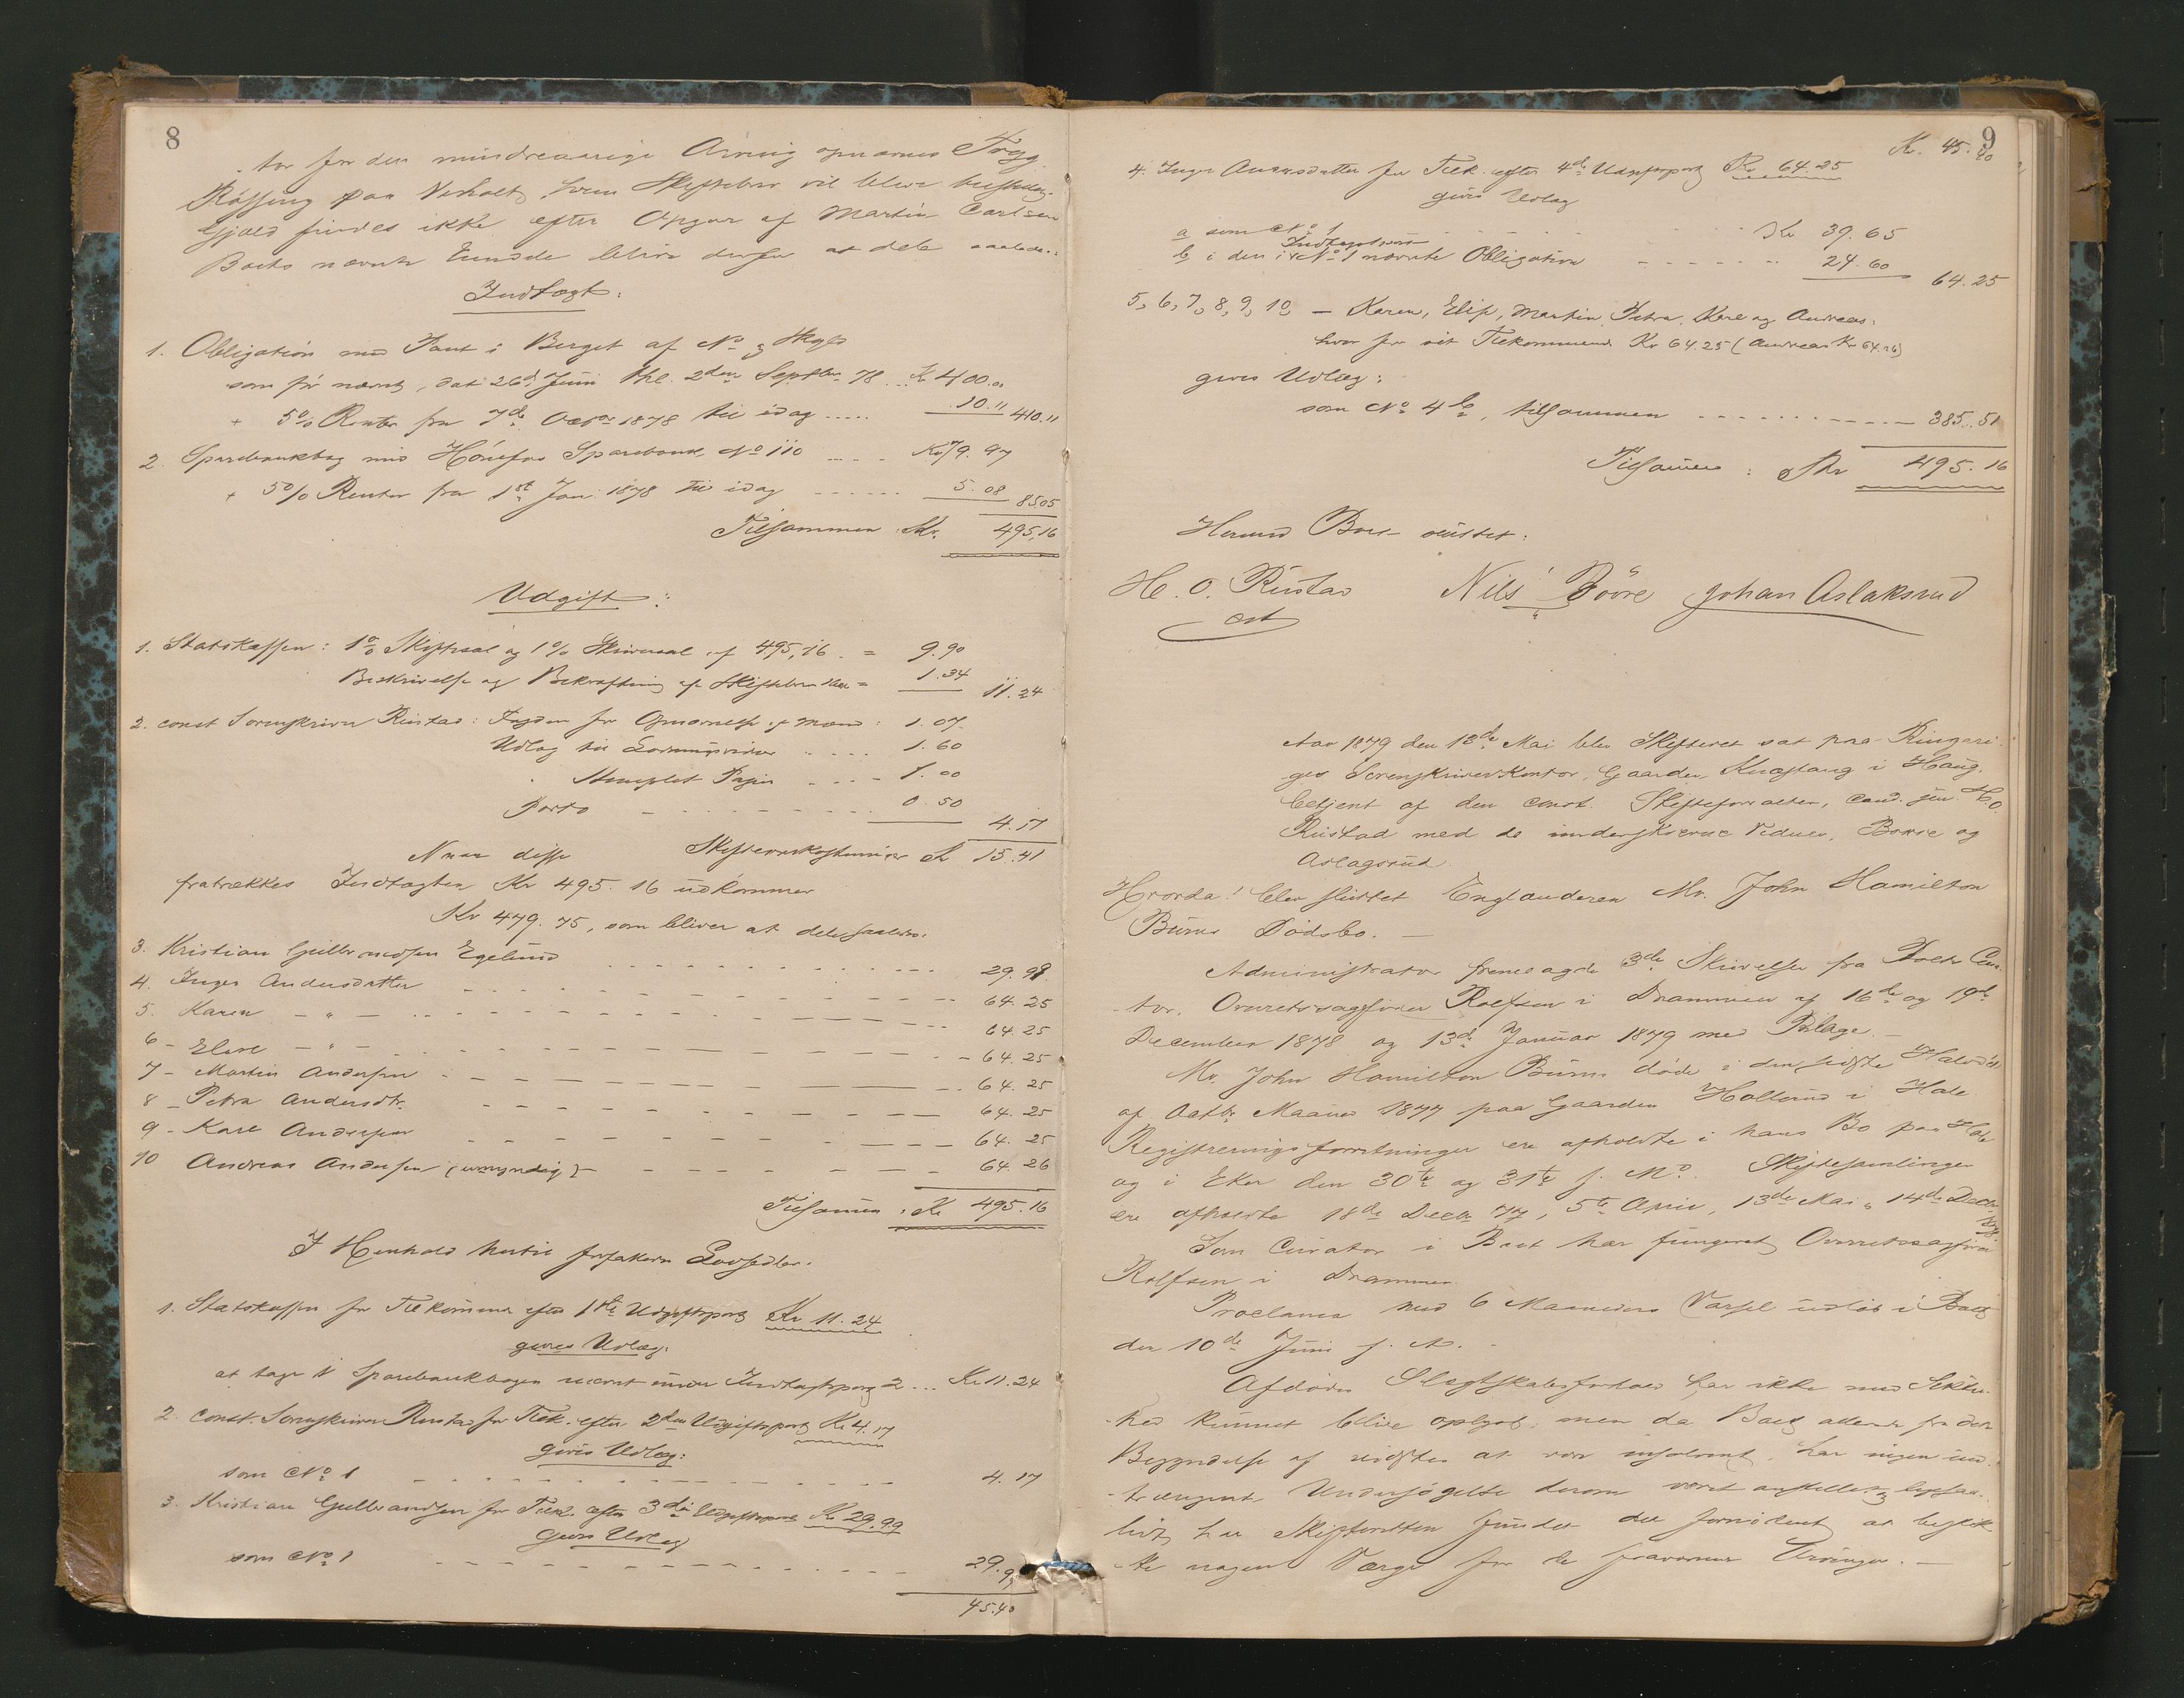 8
tor for den mindreaarige Arving opnævnes Trygg
Røssing paa Veholt, hvem Skiftebrev vil blive
Gjæld findes ikke efter Opgav af Martin Carlsen
Boets nævnte bliver derfor at dele saaledes:
Indtægt:
1. Obligation med Pant i Berget af No Skyld
som før nævnt, dat. 26de Juni thl. 2den Septbr. 78 .. Kr 400.00
+ 5% Renter fra 7de Octbr 1878 til idag ..... 10.11 410.11
2. Sparebankbog med Hønefos Sparebank No 110 .... Kr 79.97
+ 5% Renter fra 1ste Jan. 1878 til idag ...... 5.08 85.05
Tilsammen Kr. 495,16
Udgift:
1. Statskassen: 1% Skiftesal og 1% Skriversal af 495,16 = 9.90
Beskrivelse og Bekræftning af Skiftebrevene = 1.34 11.24
2. const Sorenskriver Rustad: for Opnævnelse af Mænd: 1.07
Udlæg til .... 1.60
Stemplet Papir .... 1.00
Porto 0.50
4.17
Naar disse Skifteomkostninger Kr 15.41
fratrækkes Indtægten Kr 495.16 udkommer
Kr 479.75, som bliver at dele saaledes:
3. Kristian Gulbrandsen Egelund 29.99
4. Inger Andersdatter 64.25
5. Karen — " — 64.25
6 - Elise — " — 64.25
7 - Martin Andersen 64.25
8 - Petra Andersdtr. 64.25
9 - Karl Andersen 64.25
10 Andreas Andersen (umyndig) 64.26
Tilsammen: Kr 495.16
I Henhold hertil forfattes Lodsedler.
1. Statskassen for Tilkommende efter 1ste Udgiftspost Kr 11.24
gives Udlæg:
at tage i Sparebankbogen nævnt under Indtægtspost 2 ... Kr 11.24
2. const. Sorenskriver Rustad for Tilk. efter 2den Udgiftspost Kr 4.17
gives Udlæg:
som No 1 4.17
3. Kristian Gulbrandsen for Tilk. efter 3die Udgiftspost Kr 29.99
gives Udlæg
som No 1 29.99
45.40
9
Kr. 45.40
4. Inger Andersdatter for Tilk. efter 4de Udgiftspost Kr 64.25
gives Udlæg
a som No 1 Kr 39.65
Indtægtspost
b i den i No 1 nævnte Obligation 24.60
64.25
5, 6, 7, 8, 9, 10, — Karen, Elise, Martin, Petra, Karl og Andreas:
hver for sit Tilkommende Kr 64.25 (Andreas Kr 64.26)
gives Udlæg:
som No 4 b, tilsammen 385.51
Tilsammen: Kr 495.16
Hermed Boet sluttet:
H. O. Rustad Nils Bööre Johan Aslaksrud
cst
Aar 1879 den 18de Mai blev Skifteret sat paa Ringeri-
ges Sorenskriverkontor, Gaarden Knæstang i Haug,
betjent af den const. Skifteforvalter, cand. jur. H. O.
Rustad med de underskrevne Vidner, Børre og
Aslagsrud.
Hvorda! blev sluttet Englænderen Mr. John Hamilton
Burns Dødsbo. —
Administrator fremlagde 3de Skrivelser fra Boets Cura-
tor, Overretssagfører Rolfsen i Drammen af 16de og 19de
December 1878 og 13de Januar 1879 med Bilage. —
Mr. John Hamilton Burns døde i den sidste Halvdel
af Octbr. Maaned 1877 paa Gaarden Hollerud i Hole
Registreringsforretninger ere afholdte i hans Bo paa Hole
og i Eker den 30te og 31te s. Md. Skiftesamlinger
ere afholdte 18de Decbr. 77, 5te April, 13de Mai & 14de Decbr. 1878
Som Curator i Boet har fungeret Overretssagfører
Rolfsen i Drammen.
Proclama med 6 Maaneders Varsel udløb i Boet
den 10de Juni f. A. -
Afdødes Slægtskabsforhold har ikke med Sikker-
hed kunnet blive oplyst; men da Boet allerede fra dets
Begyndelse af vidstes at være insolvent, har ingen ind-
trængende Undersøgelse derom været anstillet;
har Skifteretten fundet det fornødent at beskik-
ke nogen Værge for de fraværende Arvinger. —